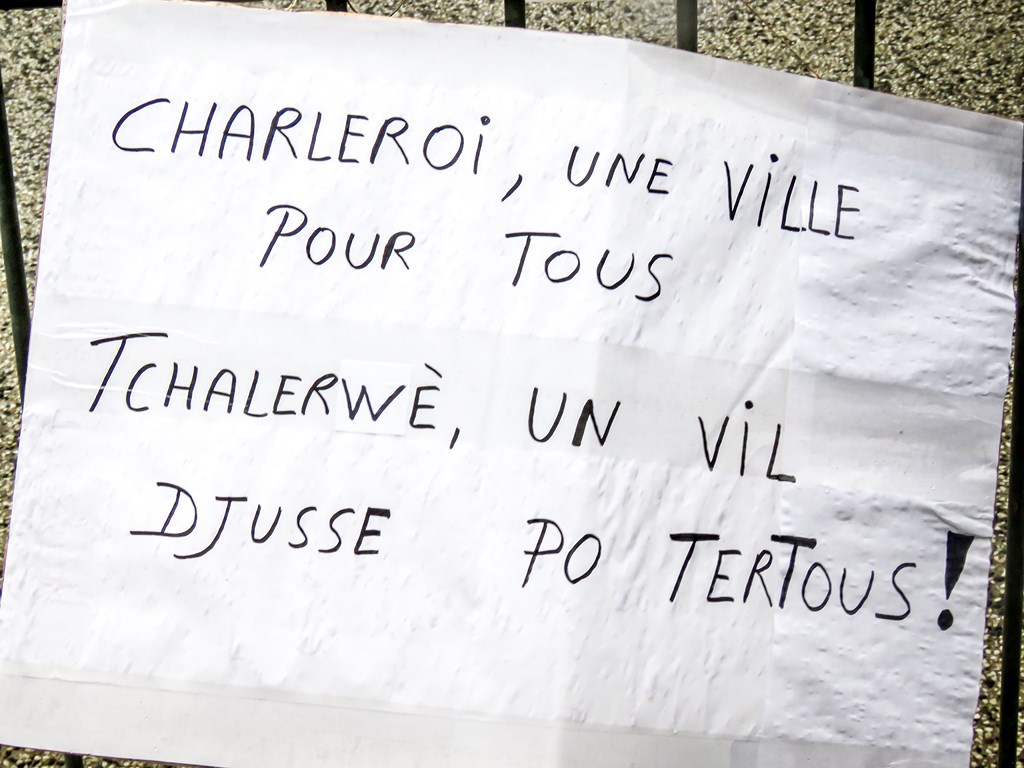 CHARLEROi, UNE ViLLE
POUR TOUS
TCHALERWÈ, UN ViL
DJUSSE PO TERTOUS!